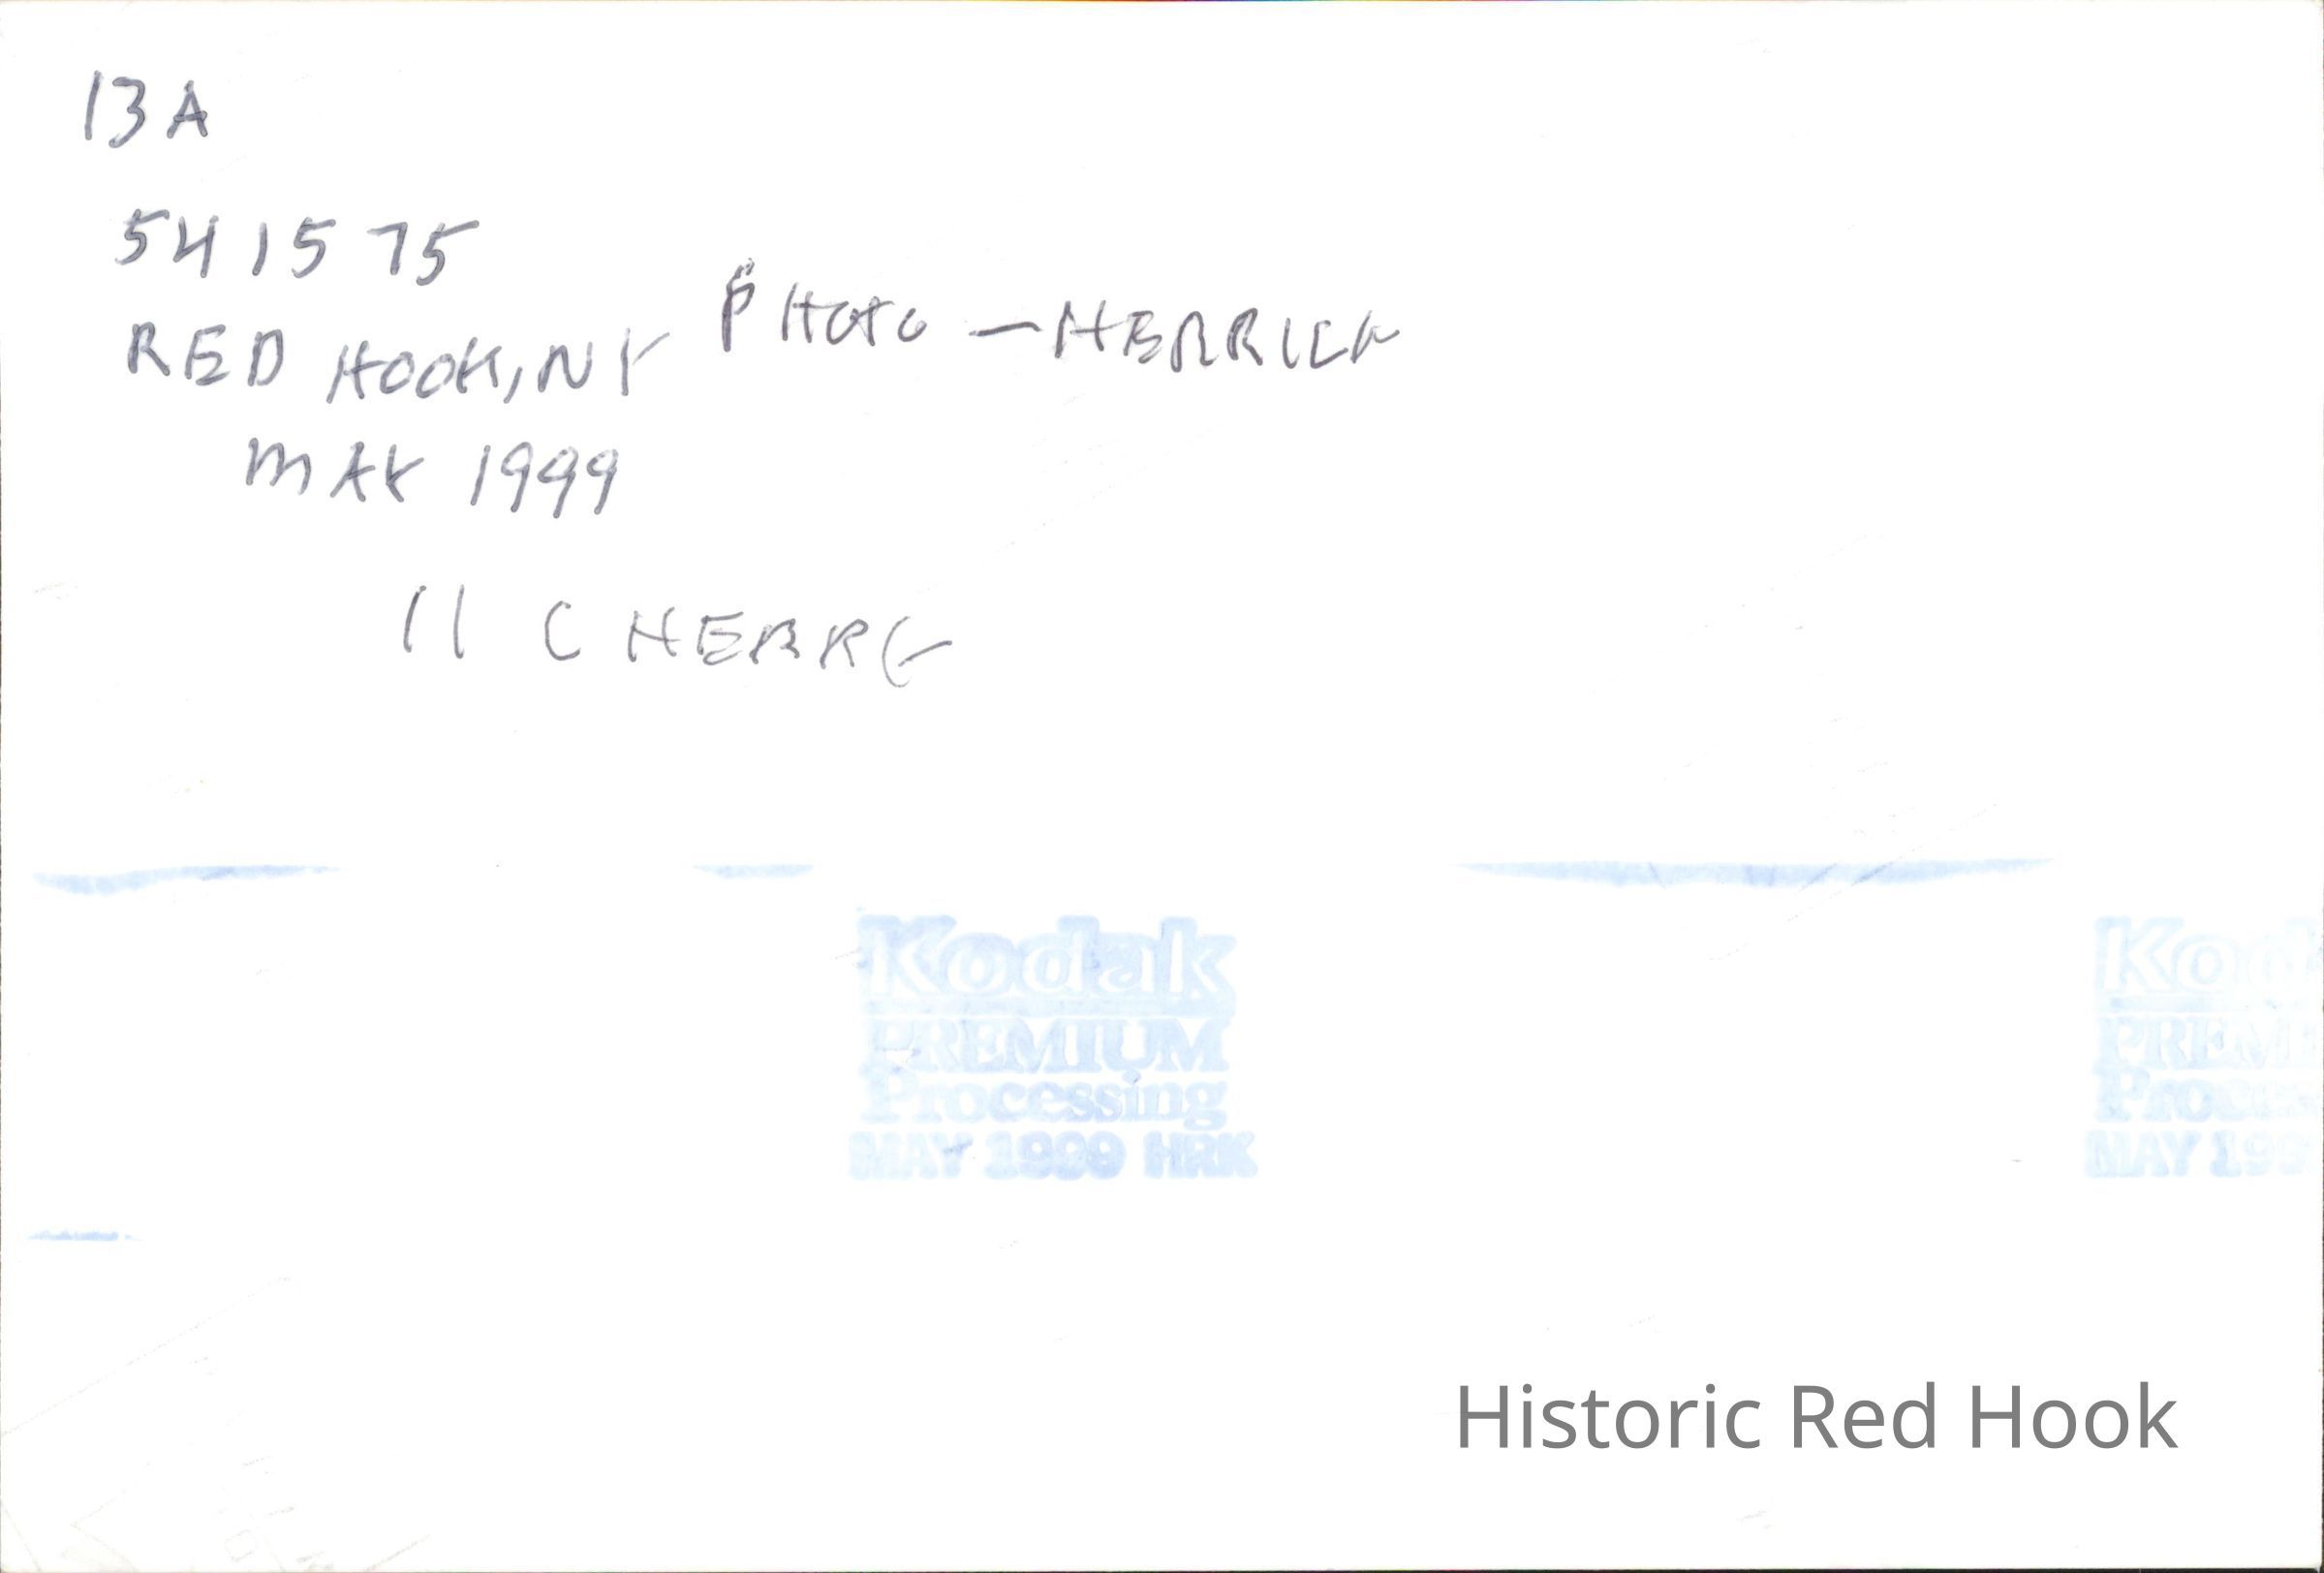 13A
541575
RED HOOK, NY PHOTO - HERRICK
MAY 1999
11 CHERRY
Kodak Kod
PREMIUM PREMI
Processing Proces
MAY 1999 HRK MAY 199
Historic Red Hook